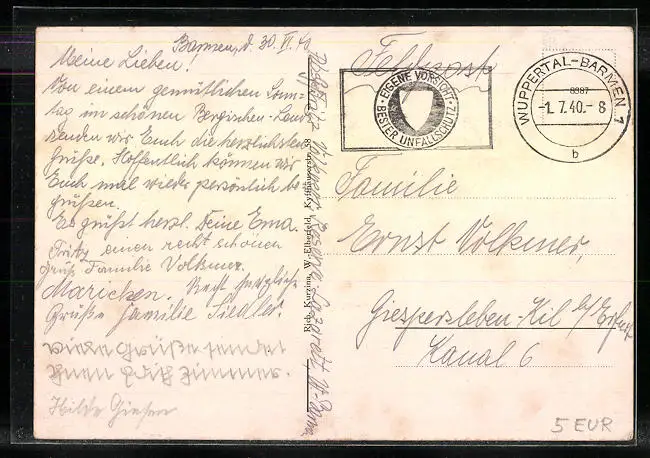 Barmen, d. 30. VI. 40
Meine Lieben!
Von einem gemütlichen Sonn-
tag im schönen Bergischen Land
senden wir Euch die herzlichsten
Grüße. Hoffentlich können wir
Euch mal wieder persönlich be-
grüßen.
Es grüßt herzl. Deine Erna.
Fritz, einen recht schönen
Gruß Familie Volkmer.
Mariechen. Recht herzliche
Grüße Familie Siedler.
Viele Grüße sendet
Ihnen Edith Zimmer.
Hilde Giesen
Rich. Kurzina, W.-Elberfeld, Kyffhäuserstr. 88
Feldpost
EIGENE VORSICHT
BESTER UNFALLSCHUTZ
WUPPERTAL-BARMEN 1
8987
-1. 7. 40. - 8
b
Familie
Ernst Volkmer,
Giespersleben-Kil b/ Erfurt
Kanal 6
5 EUR